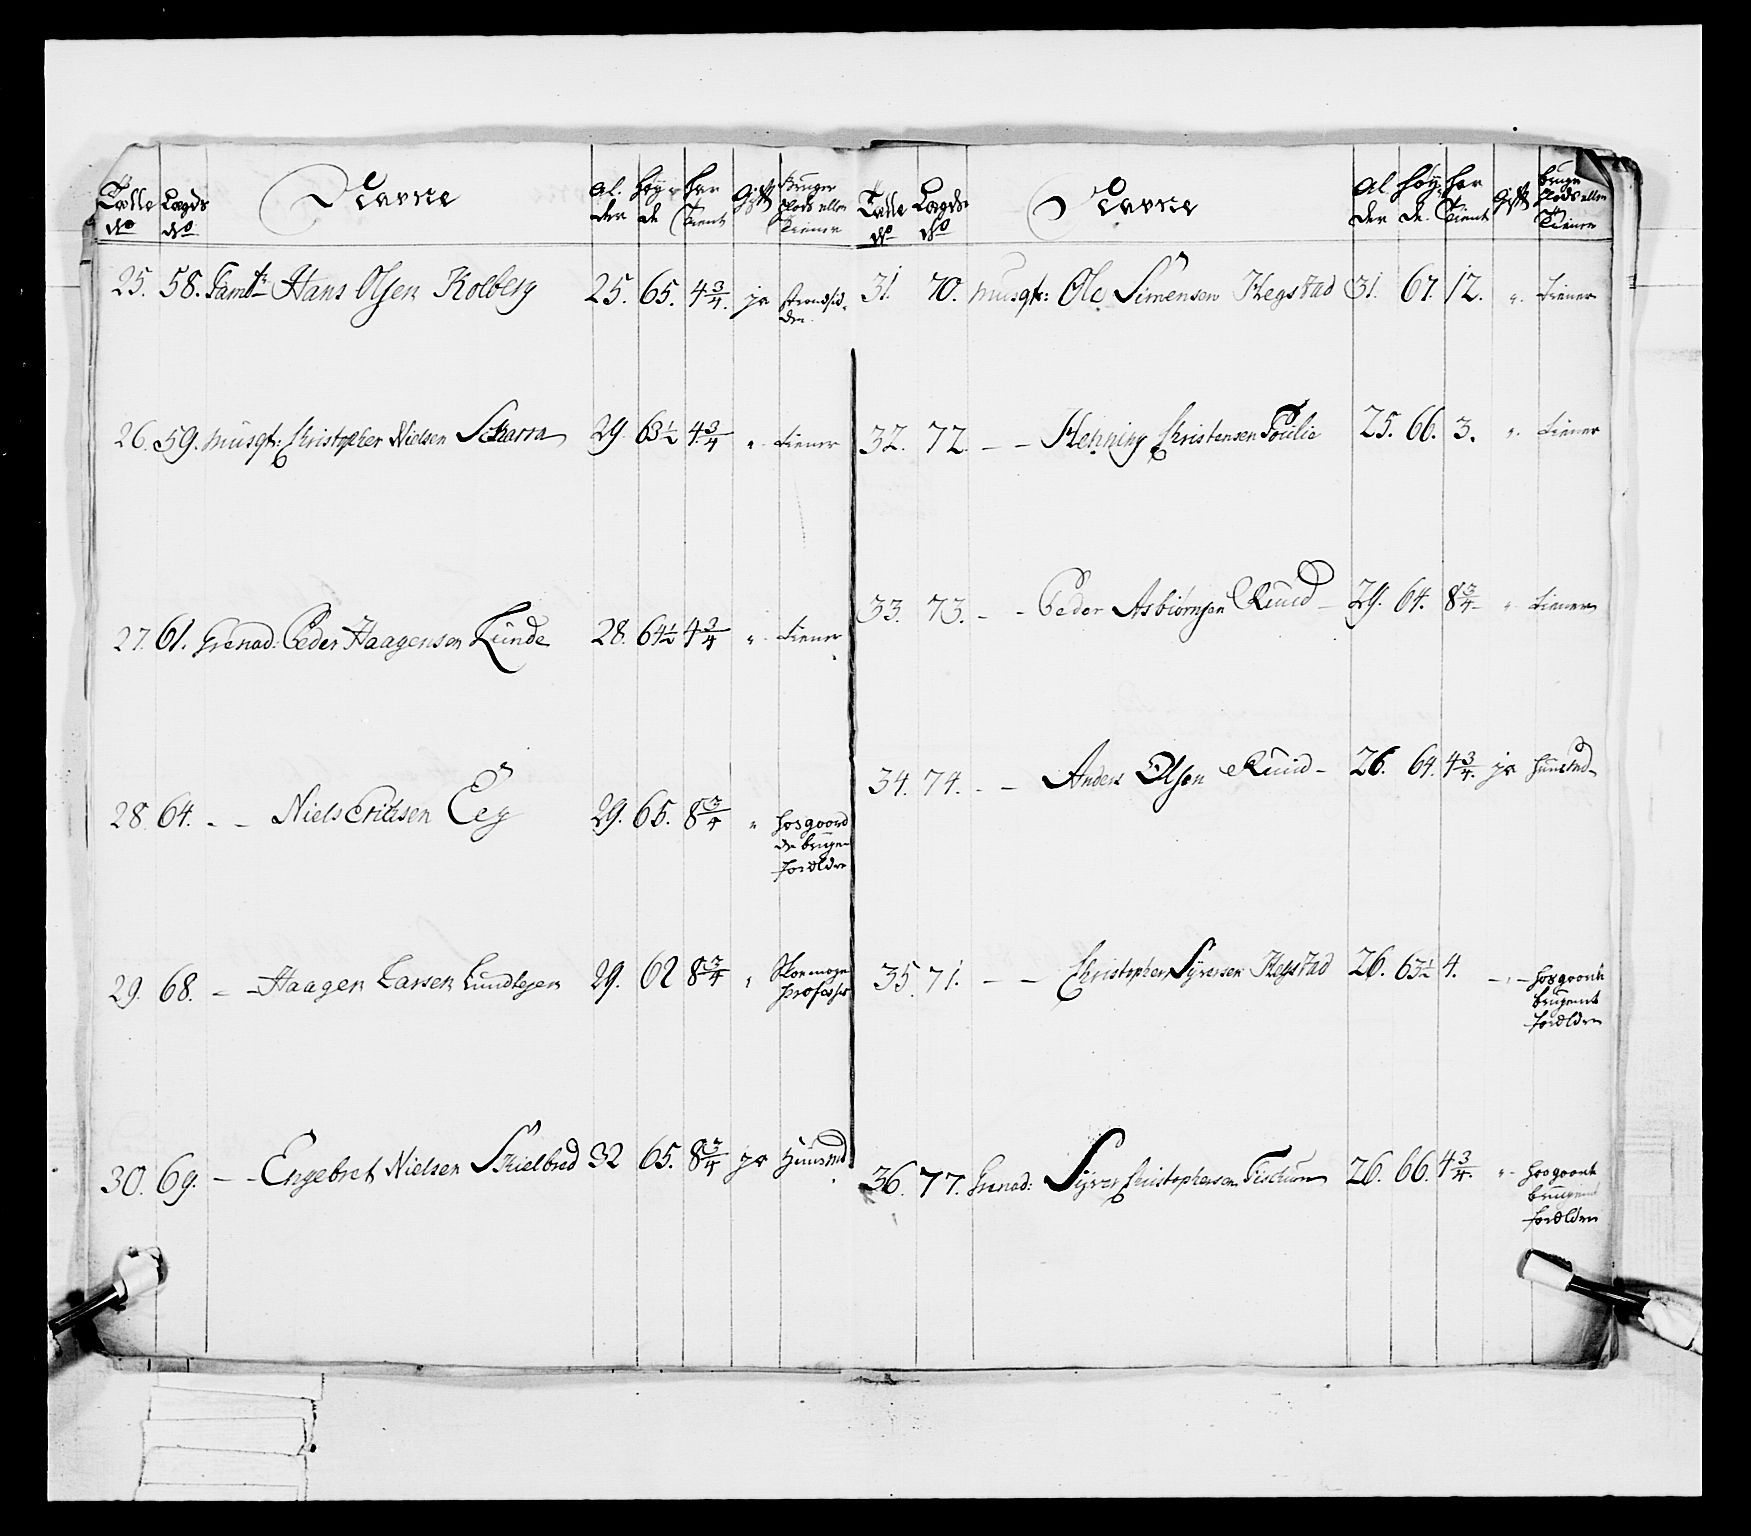 Tælle No Lægds No Navne Al der Høy de har tient Gift bruger Plads eller tiener
25. 58. Tambr Hans Olsen Kolberg 25. 65. 4 3/4. ja strandsid
den
26. 59. Musqt: Christopher Nielsen Scharra 29. 63 1/2 4 3/4 " tiener
27. 61. Grenad: Peder Haagensen Lunde 28. 64 1/2 4 3/4 " tiener
28. 64. - - Niels Eriksen Eeg 29. 65. 8 3/4 " hos gaard
de bruger
forældre
29. 68. - - Haagen Larsen Lundtejen 29. 62 8 3/4 " Skomager
profession
30. 69. - - Engebret Nielsen Skielbred 32 65. 8 3/4 ja Huusmd
Tælle No Lægds No Navne Al der Høy de har tient Gift bruger Plads eller tiener
31. 70. Musqt: Ole Simensen Hegstad 31. 67. 12. " tiener
32. 72. - - Henning Christensen 25. 66. 3. " tiener
33. 73. - - Peder Asbiørnsen Ruud - 29. 64. 8 3/4 - " tiener
34. 74. - - Anders Olsen Ruud - 26. 64. 4 3/4. ja huusmd
35. 71. - - Christopher Syversen Hegstad 26. 63 1/2 4. - " - hos gaard
brugende
forældre
36. 77. Grenad: Syver Christophersen Tischum 26. 66. 4 3/4. " - hos gaard
brugend
forældre